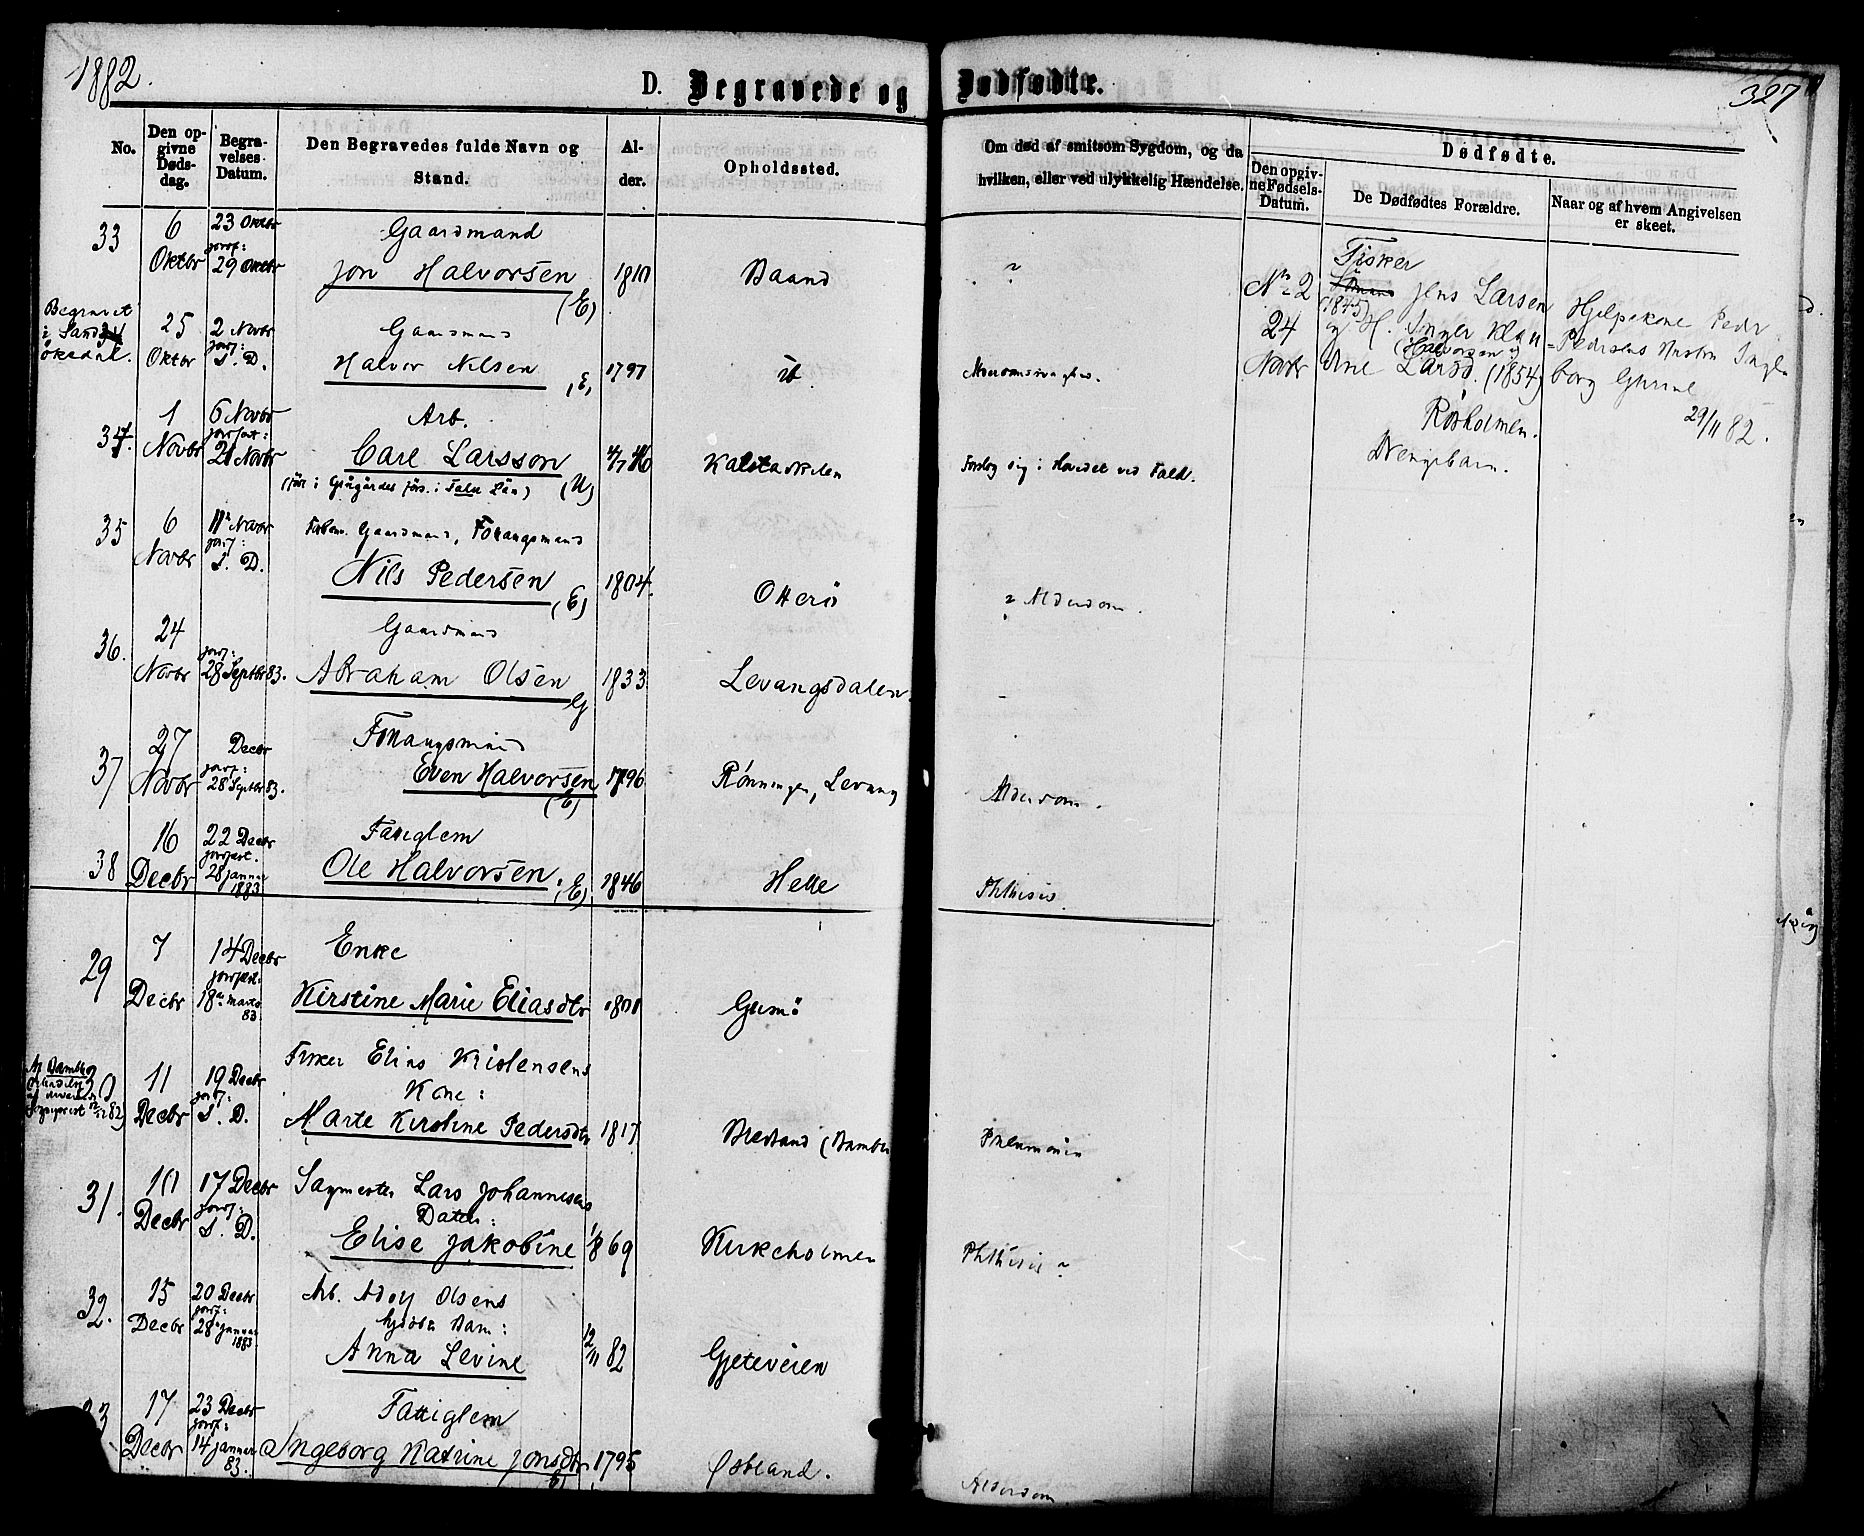 1882.
D. Begravede og Dødfødte.
327
No.
Den op-
givne
Døds-
dag.
Begra-
velses-
Datum.
Den Begravedes fulde Navn og
Stand.
Al-
der.
Opholdssted.
Om død af smitsom Sygdom, og da
hvilken, eller ved ulykkelig Hændelse.
Dødfødte.
Den opgiv-
ne Fødsels-
Datum.
De Dødfødtes Forældre.
Naar og af hvem Angivelsen
er skeet.
33
6
Oktbr
23 Oktbr
jordf:
29 Oktbr
Gaardmand
Jon Halvorsen
(E)
1810
Baand
"
Begravet
i Sand
økedal.
34
25
Oktbr
2 Novbr
jordf:
S. D.
Gaardmand
Halvor Nilsen
(E)
1797
ib
34.
1
Novbr
6 Novbr
jordfæt:
21 Novbr
Arb.
Carl Larsson
(U)
Kalstadkilen
Forslog sig i Hovedet ved Fald.
35
6
Novbr
11te Novbr
jordf:
S. D.
Forhenv. Gaardmand, Foraugsmand
Nils Pedersen
(E)
1804.
Otterö
Alderdom.
36.
24
Novbr
jordf:
28 Septbr 83.
Gaardmand
Abraham Olsen
G
1833
Levangsdalen.
37
27
Novbr
Decbr
jordf:
28 Septbr 83.
Foraugsmand
Even Halvorsen
(E)
1796
Rønningen, Levang
Alderdom.
38
16
Decbr
22 Decbr
jordfæst.
28 januar
1883
Fattiglem
Ole Halvorsen
(E)
1846
Helle
Phthisis.
29
7
Decbr
14 Decbr
jordfæst:
18de marts
83.
Enke
Kirstine Marie Eliasdtr
1801
Gumö
11
Decbr
19 Decbr
jordf:
S. D.
Fisker Elias Kristensens
Kone:
Marte Kirstine Pedersdtr
1817
Bredsand (Bamble
Pneumonia
31.
10
Decbr
17 Decbr
jordf:
S. D.
Sagmester Lars Johannesens
Datter:
Elise Jakobine
1869
Kirkeholmen
Phthisis
32.
15
Decbr
20 Decbr
jordf:
28de januar
1883.
Arb. Adolf Olsens
Barn:
Anna Levine
12/11 82
Gjeteveien
33
17
Decbr
23 Decbr
jordf:
14 januar
83.
Fattiglem
Ingeborg Katrine Jonsdtr
1795
Østland.
Alderdom
No 2
24
Novbr
Fisker
Jens Larsen
(1845)
og H. Inger
Halvorsen
Larsd. (1854)
Røsholmen.
Drengebarn.
Hjelpekone Peder
Pedersens Hustru Inge-
borg Gurine
29/11 82.